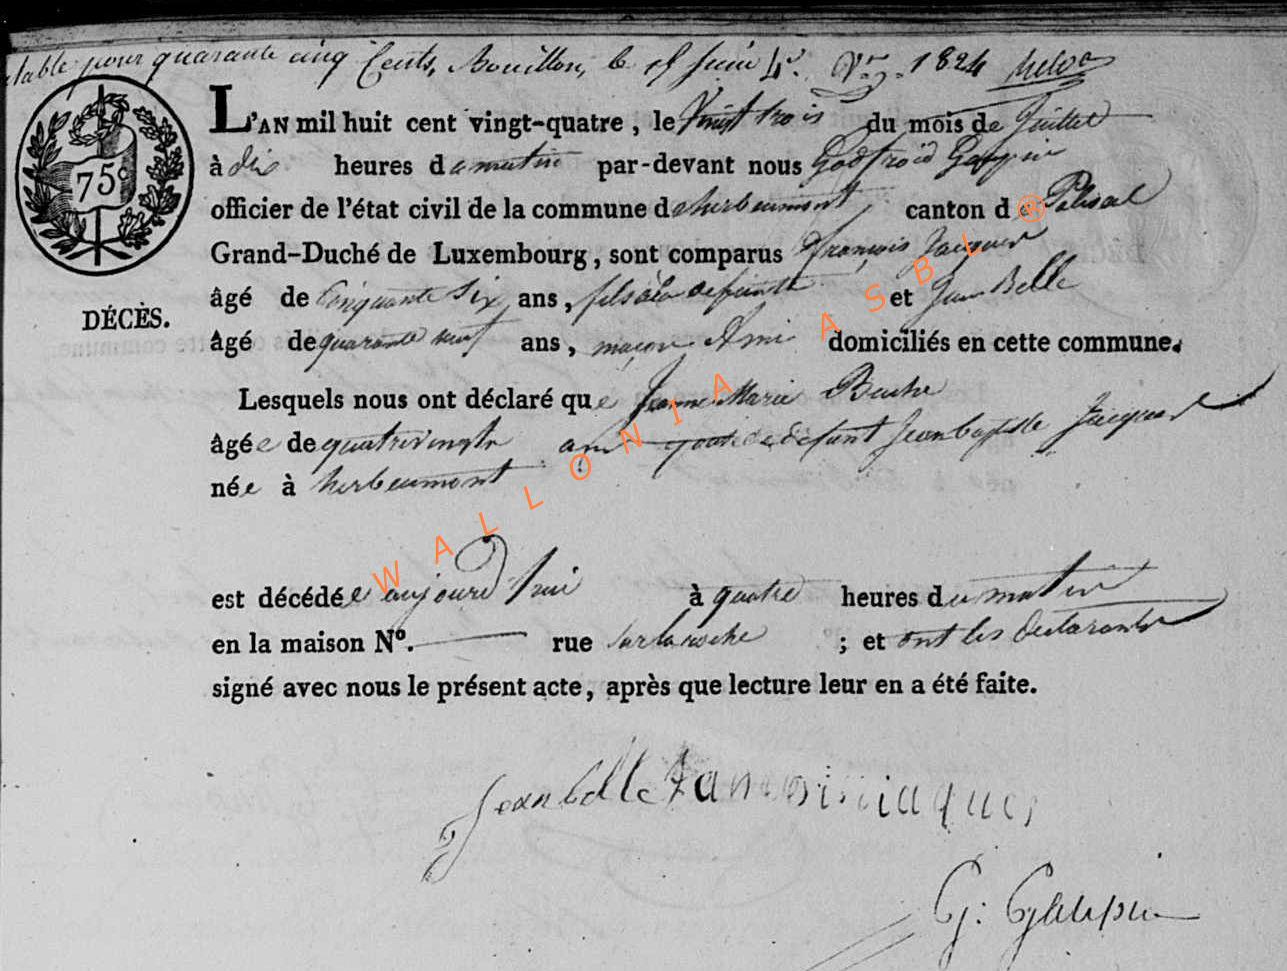 pour quarante cinq Cents, Bouillon, le 1824
75c
L'AN mil huit cent vingt-quatre, le Vingt trois du mois de Juillet
à dix heures du matin par-devant nous Godfroid Gaupin
officier de l'état civil de la commune d'herbeumont canton de Paliseul
Grand-Duché de Luxembourg, sont comparus françois Jacques
DÉCÈS.
âgé de Cinquante Six ans, fils à la defunte et Jean Belle
âgé de quarante neuf ans, maçon Ami domiciliés en cette commune.
Lesquels nous ont déclaré que Jeanne Marie
âgée de quatrevingts ans de défunt Jean baptiste Jacques
née à herbeumont
est décédée aujourd'hui à quatre heures du matin
en la maison N°. rue sur la roche ; et ont les declarants
signé avec nous le présent acte, après que lecture leur en a été faite.
Jean belle françois iaques
G: Gaupin
@ WALLONIA ASBL